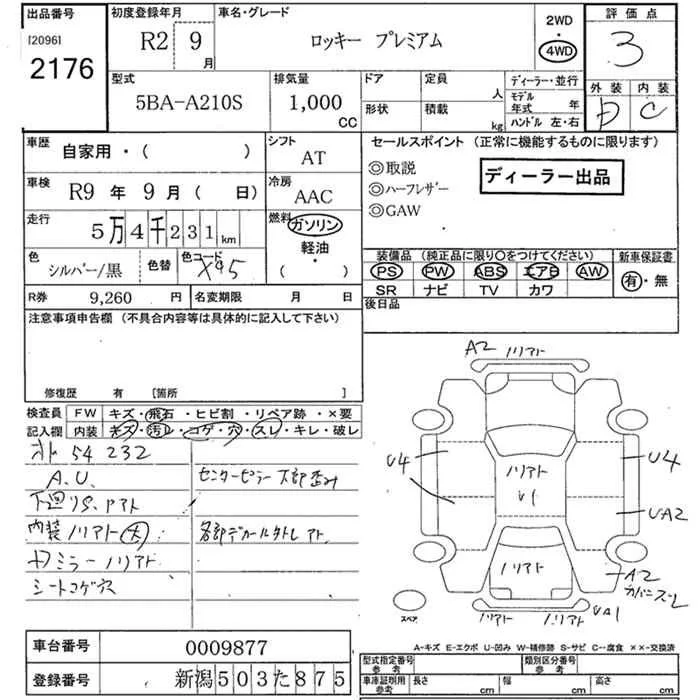 出品番号
[2096]
2176
初度登録年月
R2 9
月
車名・グレード
ロッキー プレミアム
2WD
・
4WD
評価点
3
型式
5BA-A210S
排気量
1,000
CC
ドア
形状
定員
人
積載
kg
ディーラー・並行
モデル
年式 年
ハンドル 左・右
外装 内装
D C
車歴
自家用・( )
シフト
AT
車検
R9 年 9 月 ( 日)
冷房
AAC
走行
5万4千231km
燃料
ガソリン
軽油
・
( )
色
シルバー/黒
色替
色コード
X95
R券
9,260 円
名変期限 月 日
セールスポイント (正常に機能するものに限ります)
◎取説
◎ハーフレザー
◎GAW
ディーラー出品
装備品 (純正品に限り○をつけてください)
PS PW ABS エアB AW
SR ナビ TV カワ
新車保証書
有・無
後日品
注意事項申告欄 (不具合内容等は具体的に記入して下さい)
修復歴 有 [箇所 ]
検査員
記入欄
FW キズ・飛石・ヒビ割・リペア跡・×要
内装 キズ・汚レ・コゲ・穴・スレ・キレ・破レ
54232
A.U.
下廻りS.アト
内装ノリアト(大)
ミラーノリアト
シートコゲ穴
センターピラー下部歪み
各部デカールハトレアト
A2 ノリアト
U4
ノリアト
U1
U4
UA2
ノリアト
A2
カバーズレ
ノリアト ノリアト UA1
スペア
A-キズ E-エクボ U-凹み W-補修跡 S-サビ C-腐食 ××-交換済
車台番号
0009877
登録番号
新潟503た875
型式指定番号
参考
類別区分番号
参考
車庫証明用
参考
長さ cm
幅 cm
高さ cm